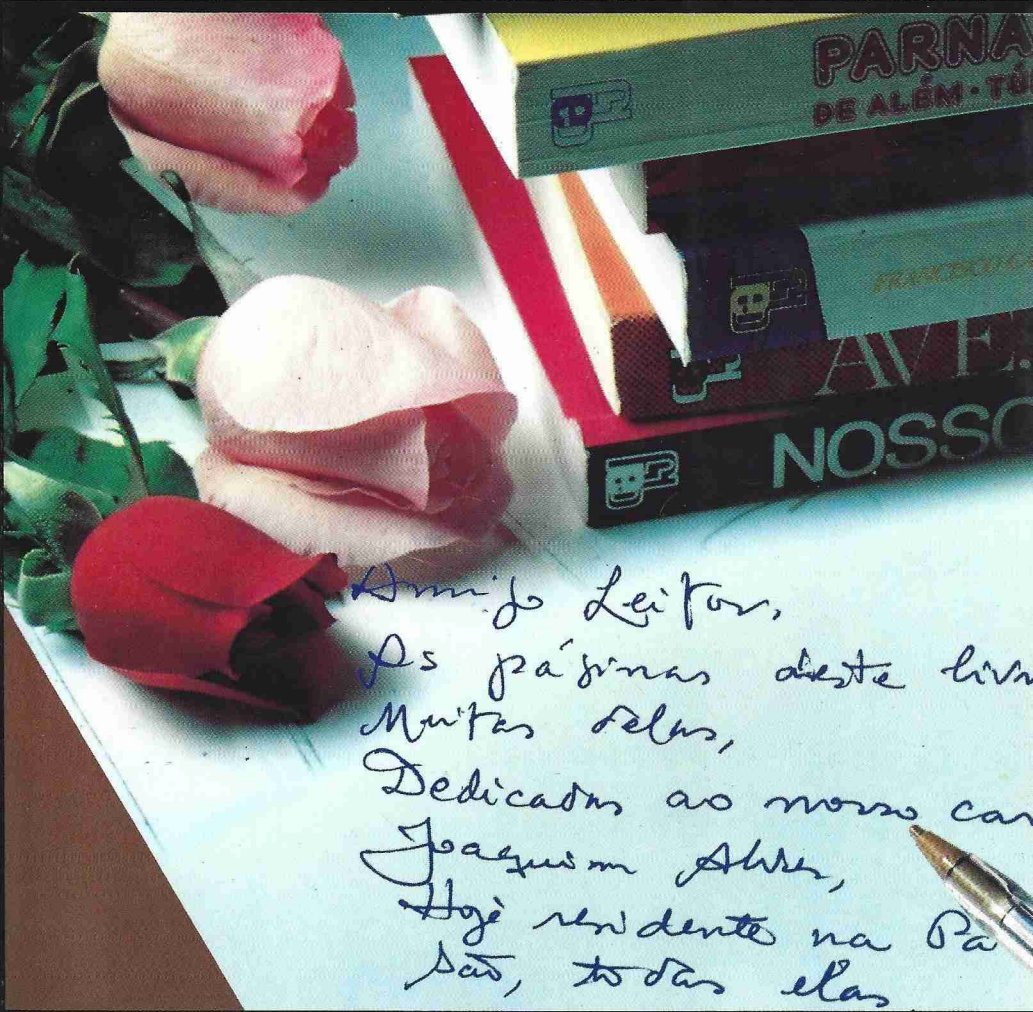 PARNA
DE ALÉM·TÚ
FRANCISCO C
AVE
NOSSO
Amigo Leitor,
As páginas deste livr
Muitas delas,
Dedicadas ao nosso car
Joaquim Alves,
Hoje residente na Pá
São, todas elas